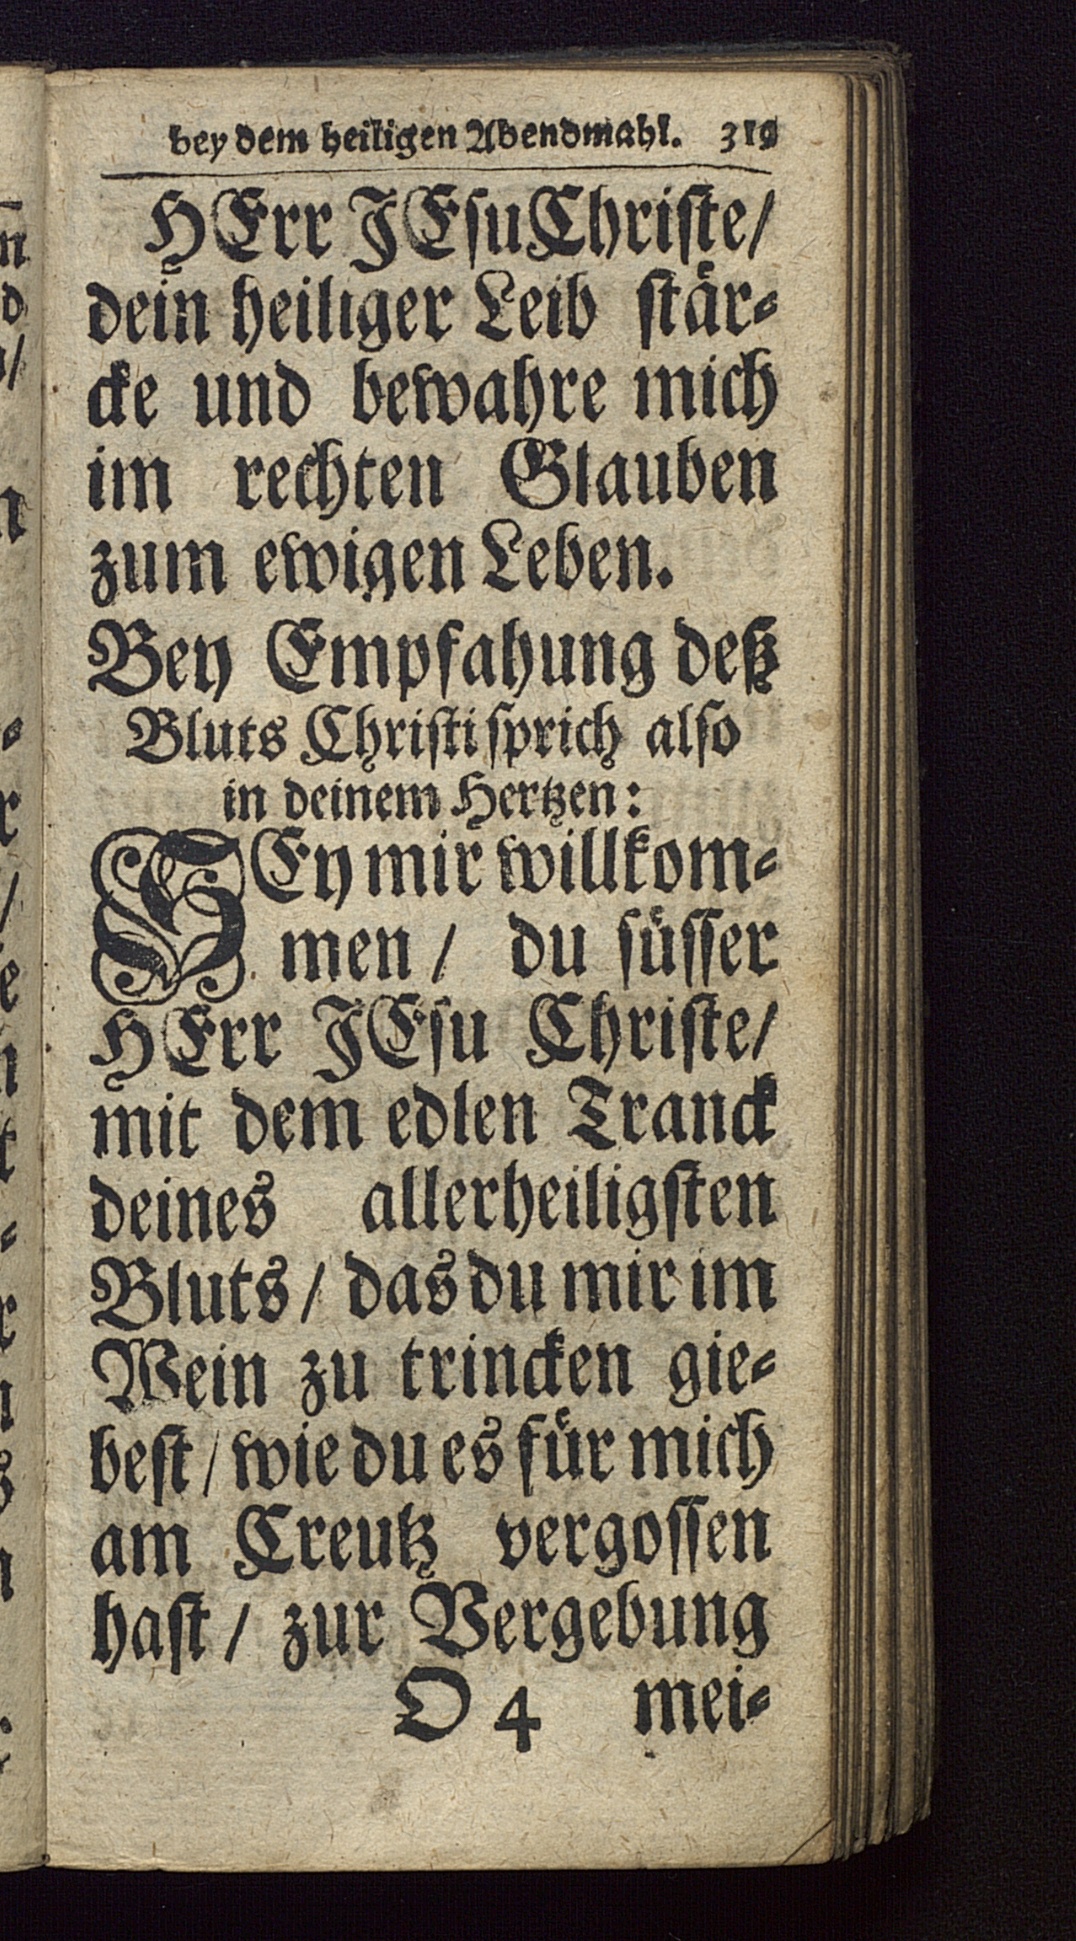 bey dem heiligen Abendmahl. 319
HErr JEsu Christe/
dein heiliger Leib stär-
cke und bewahre mich
im rechten Glauben
zum ewigen Leben.
Bey Empfahung deß
Bluts Christi sprich also
in deinem Hertzen:
SEy mir willkom-
men / du süsser
HErr JEsu Christe/
mit dem edlen Tranck
deines allerheiligsten
Bluts / das du mir im
Wein zu trincken gie-
best / wie du es für mich
am Creutz vergossen
hast / zur Vergebung
O 4 mei-